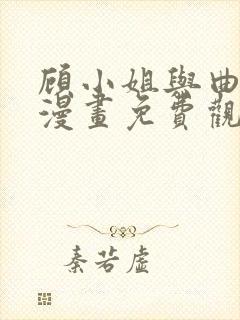 顾小姐與曲
漫畫免費觀
秦若虛